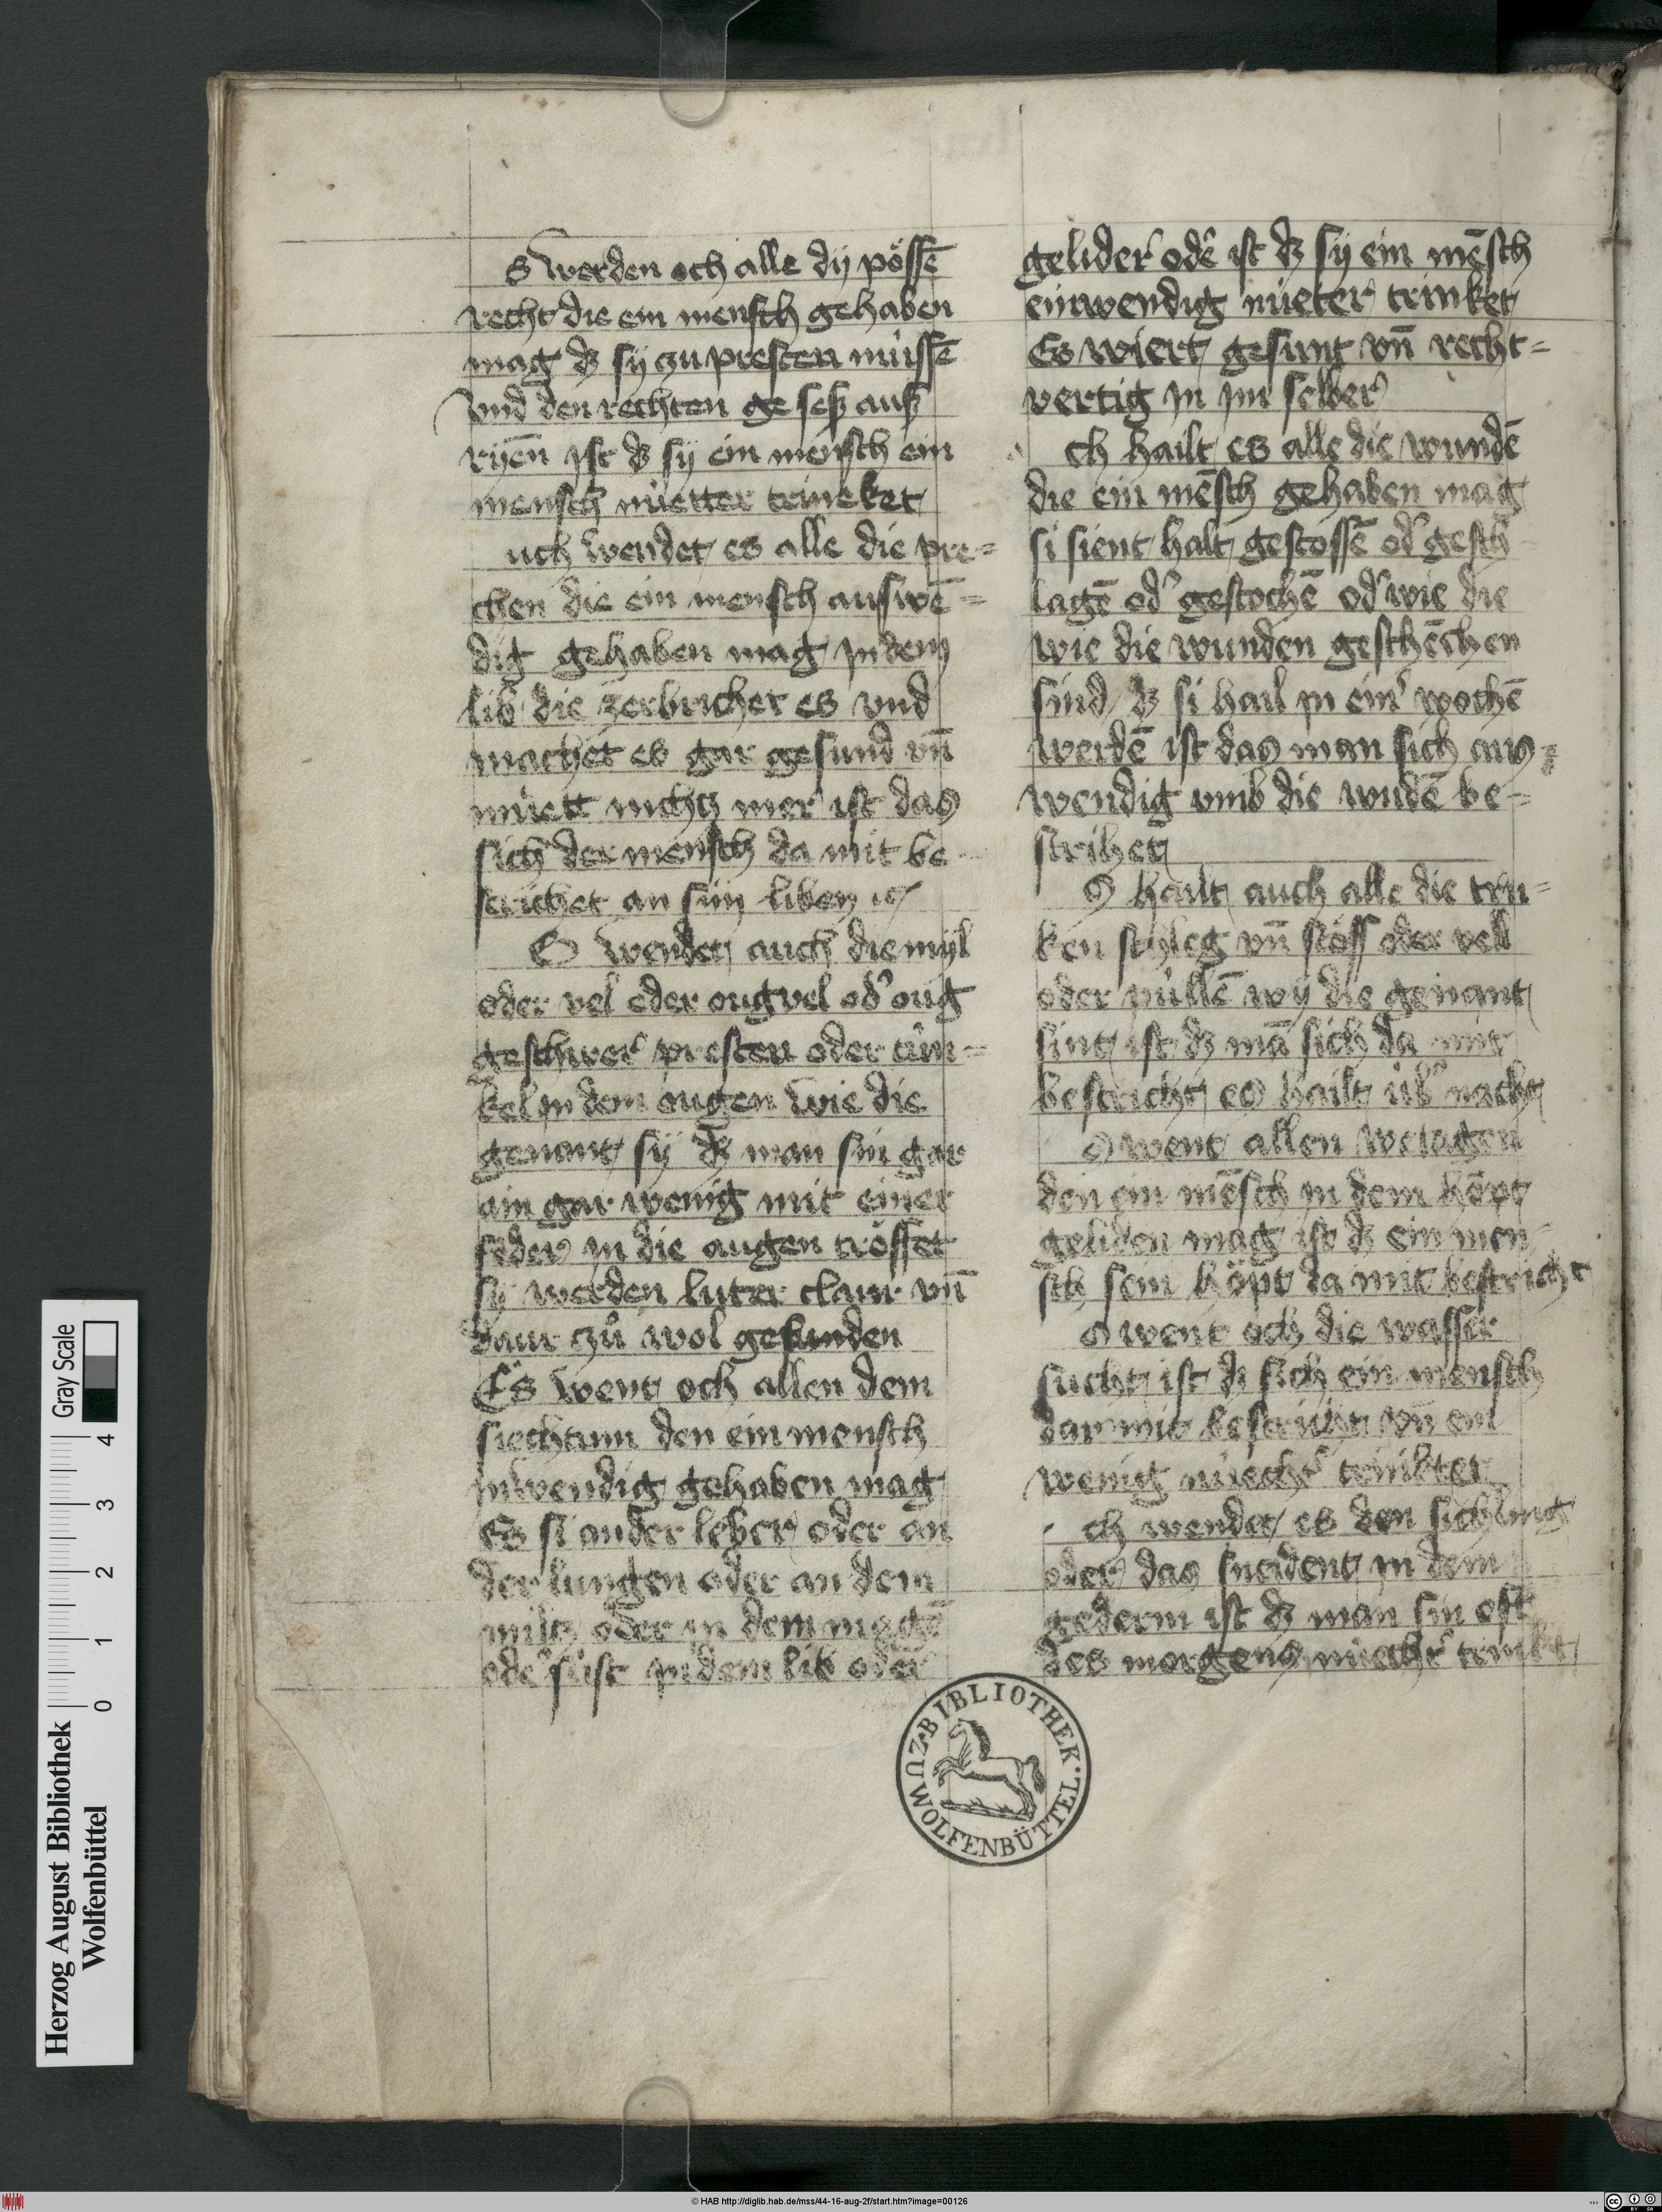 s werden och alle dÿ pössē
recht die ein mensch gehaben
mag dz sÿ zu presten müssē
vnd den rechten ge sesz ausz
rÿēn jst dz sÿ ein mensch ein
mensch nüetter trincket
uch wendet es alle die pre=
chen die ein mensch auswē=
dig gehaben mag jn dem
lib die zerbrichet es vnd
machet es gar gesund vn̄
nüett nichtz mer ist das
sich der mensch da mit be
strichet an sim liben
S wendet auch die mÿl
oder vel oder ougvel od' oug
geschwer presten oder tün=
kel jn dem ougen wie die
genant sÿ dz man sin gar
ain gar wenig mit einer
feder jn die augen trösset
sÿ werden luter claur vn̄
daur zů wol gesunden
Es went och allen dem
siechtum den ein mensch
jnwendig gehaben mag
Es si an der leber oder an
der lungen oder an dem
miltz oder jn dem magē
oder süst jn dem lib oder
gelider odē ist dz sÿ ein mēsch
einwendig nüeter trinket
Es wiert gesunt vn̄ recht=
vertig jn jm selber
ch hailt es alle die wundē
die ein mēsch gehaben mag
si sient halt gestossē od' gesch
lagē od' gestochē od' wie die
wie die wunden geschēchen
sind dz si hail jn ein' wochē
werdē ist das man sich aus=
wendig vmb die wūdē be=
strihet
S hailt auch alle die tru=
ken schleg vn̄ stöss oder vell
oder nüllē wÿ die genant
sint ist dz mā sich da mit
bestricht es hailt üb' nacht
S went allen wetagen
den ein mēsch jn dem höpt
geliden mag ist dz ein men=
sch sein höpt da mit bestricht
S went och die wasser
sucht ist dz sich ein mensch
dar mit bestricht vn̄ ein
wenig nüecht' trinktet
ch wendet es den
oder das sneident jn dem
gederm ist dz man sin oft
des morgens nüecht' trinkt
BIBLIOTHEK · ZU WOLFENBÜTTEL ·
Herzog August Bibliothek
Wolfenbüttel
Gray Scale
0 1 2 3 4
© HAB http://diglib.hab.de/mss/44-16-aug-2f/start.htm?image=00126